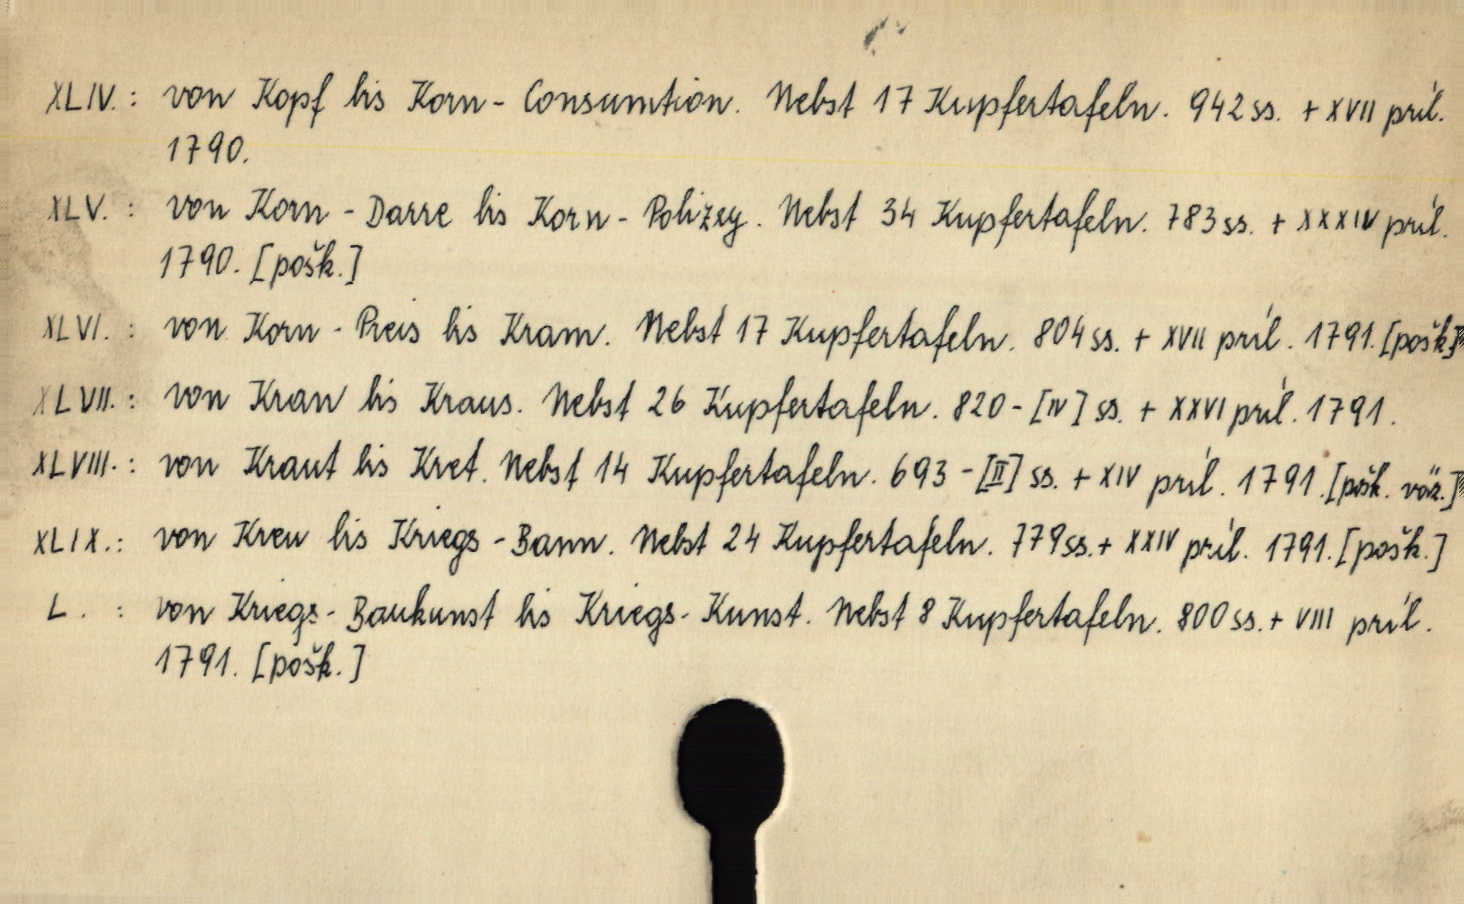 XLIV. : von Kopf bis Korn - Consumtion. Nebst 17 Kupfertafeln. 942 ss. + XVII príl.
1790.
XLV. : von Korn - Darre bis Korn - Polizey. Nebst 34 Kupfertafeln. 783 ss. + XXXIV príl.
1790. [pošk.]
XLVI. : von Korn - Preis bis Kram. Nebst 17 Kupfertafeln. 804 ss. + XVII príl. 1791. [pošk.]
XLVII. : von Kran bis Kraus. Nebst 26 Kupfertafeln. 820 - [IV] ss. + XXVI príl. 1791.
XLVIII. : von Kraut bis Kret. Nebst 14 Kupfertafeln. 693 - [II] ss. + XIV príl. 1791. [pošk. väz.]
XLIX. : von Kreu bis Kriegs - Bann. Nebst 24 Kupfertafeln. 779 ss. + XXIV príl. 1791. [pošk.]
L. : von Kriegs - Baukunst bis Kriegs - Kunst. Nebst 8 Kupfertafeln. 800 ss. + VIII príl.
1791. [pošk.]